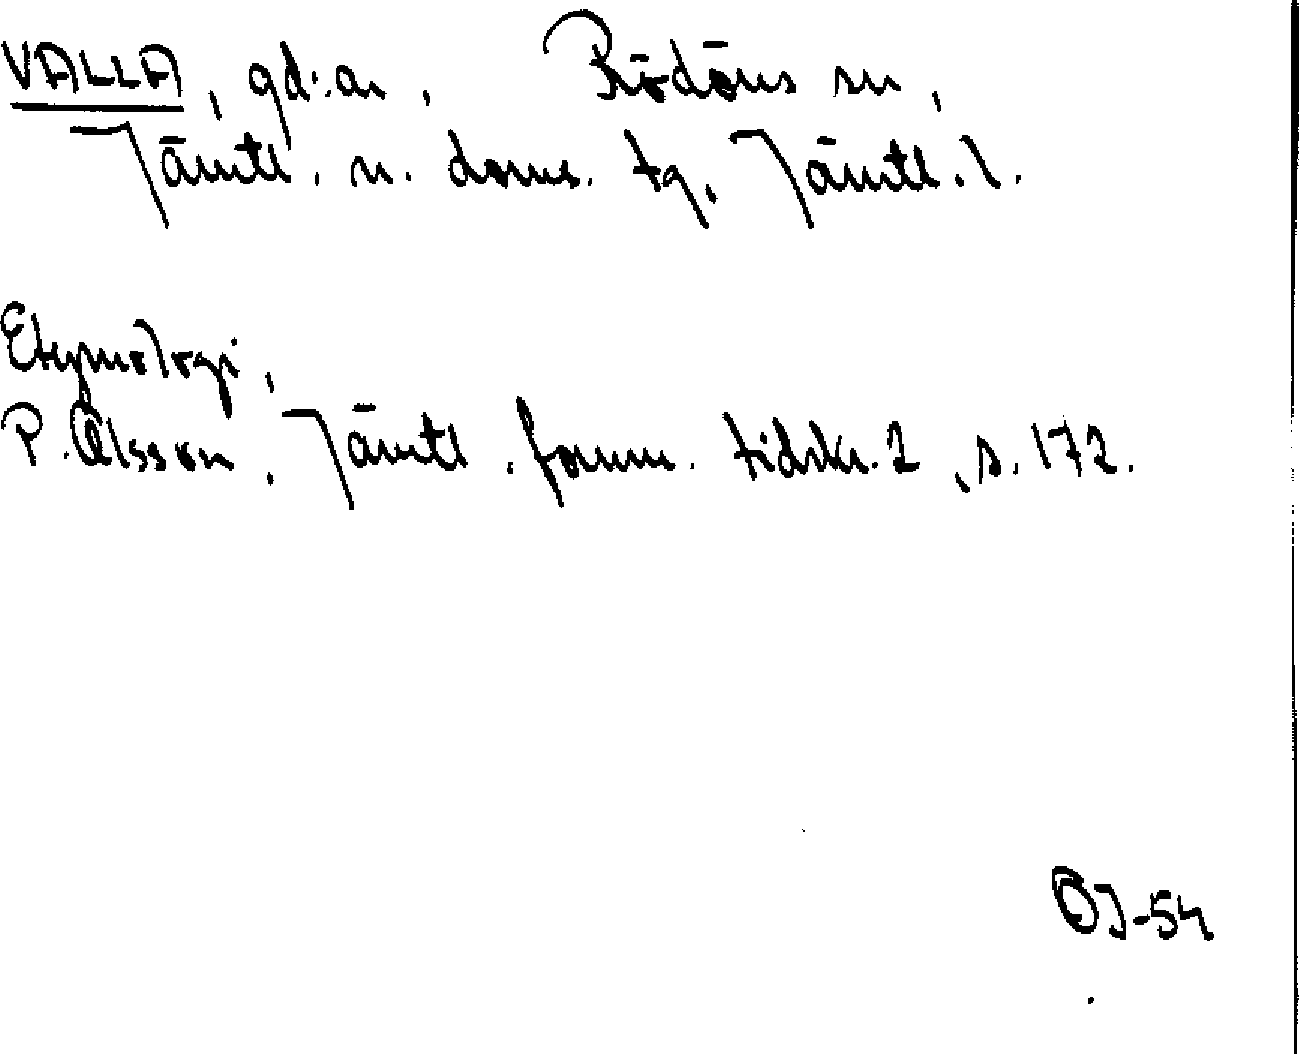 VALLA, gd:ar, Rödöns sn,
Jämtl. n. doms. tg, Jämtl. l.
Etymologi,
P. Olsson, Jämtl. fornm. tidskr. 2, s. 172.
OJ-54